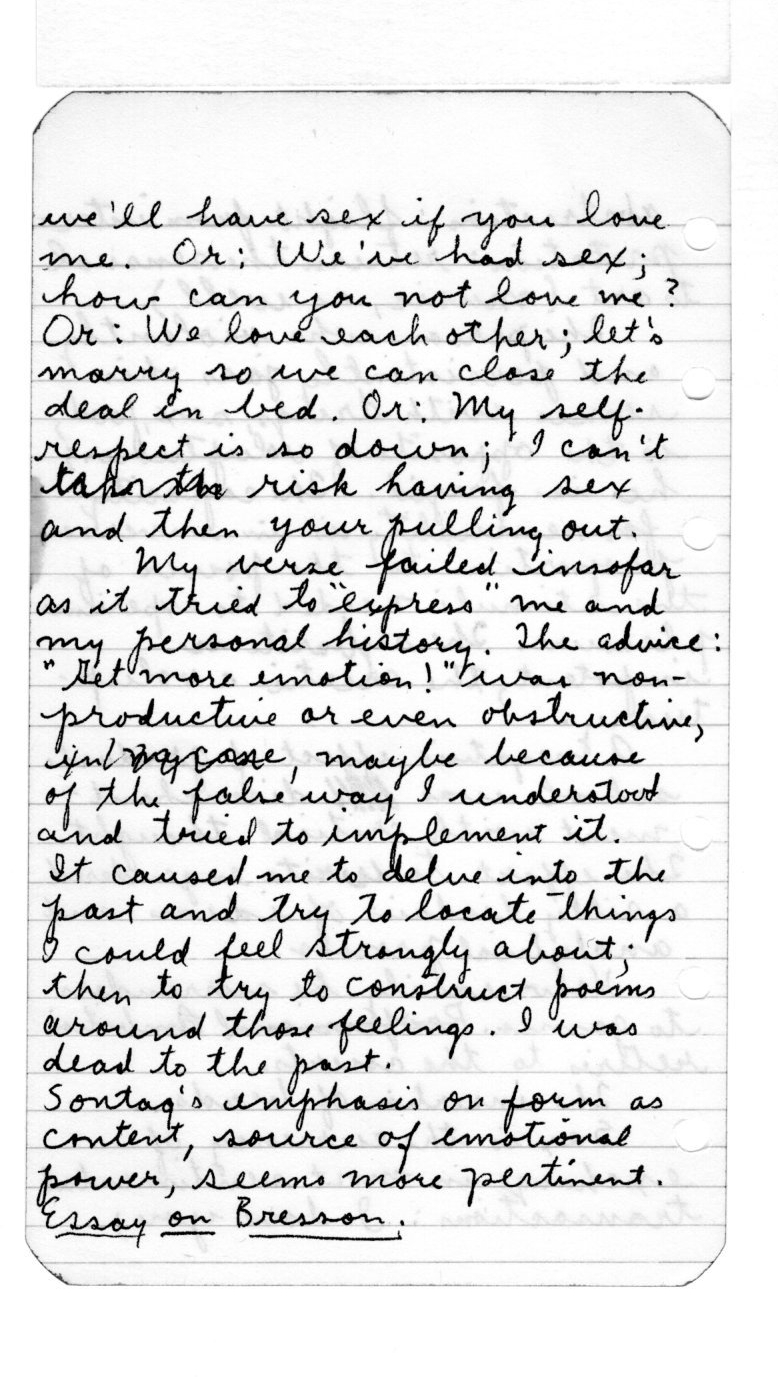 we'll have sex if you love
me. Or: We've had sex;
how can you not love me?
Or: We love each other; let's
marry so we can close the
deal in bed. Or: My self-
respect is so down; I can't
risk having sex
and then your pulling out.
My verse failed insofar
as it tried to "express" me and
my personal history. The advice:
"Get more emotion!" was non-
productive or even obstructive,
in my case, maybe because
of the false way I understood
and tried to implement it.
It caused me to delve into the
past and try to locate things
I could feel strongly about;
then to try to construct poems
around those feelings. I was
dead to the past.
Sontag's emphasis on form as
content, source of emotional
power, seems more pertinent.
Essay on Bresson.